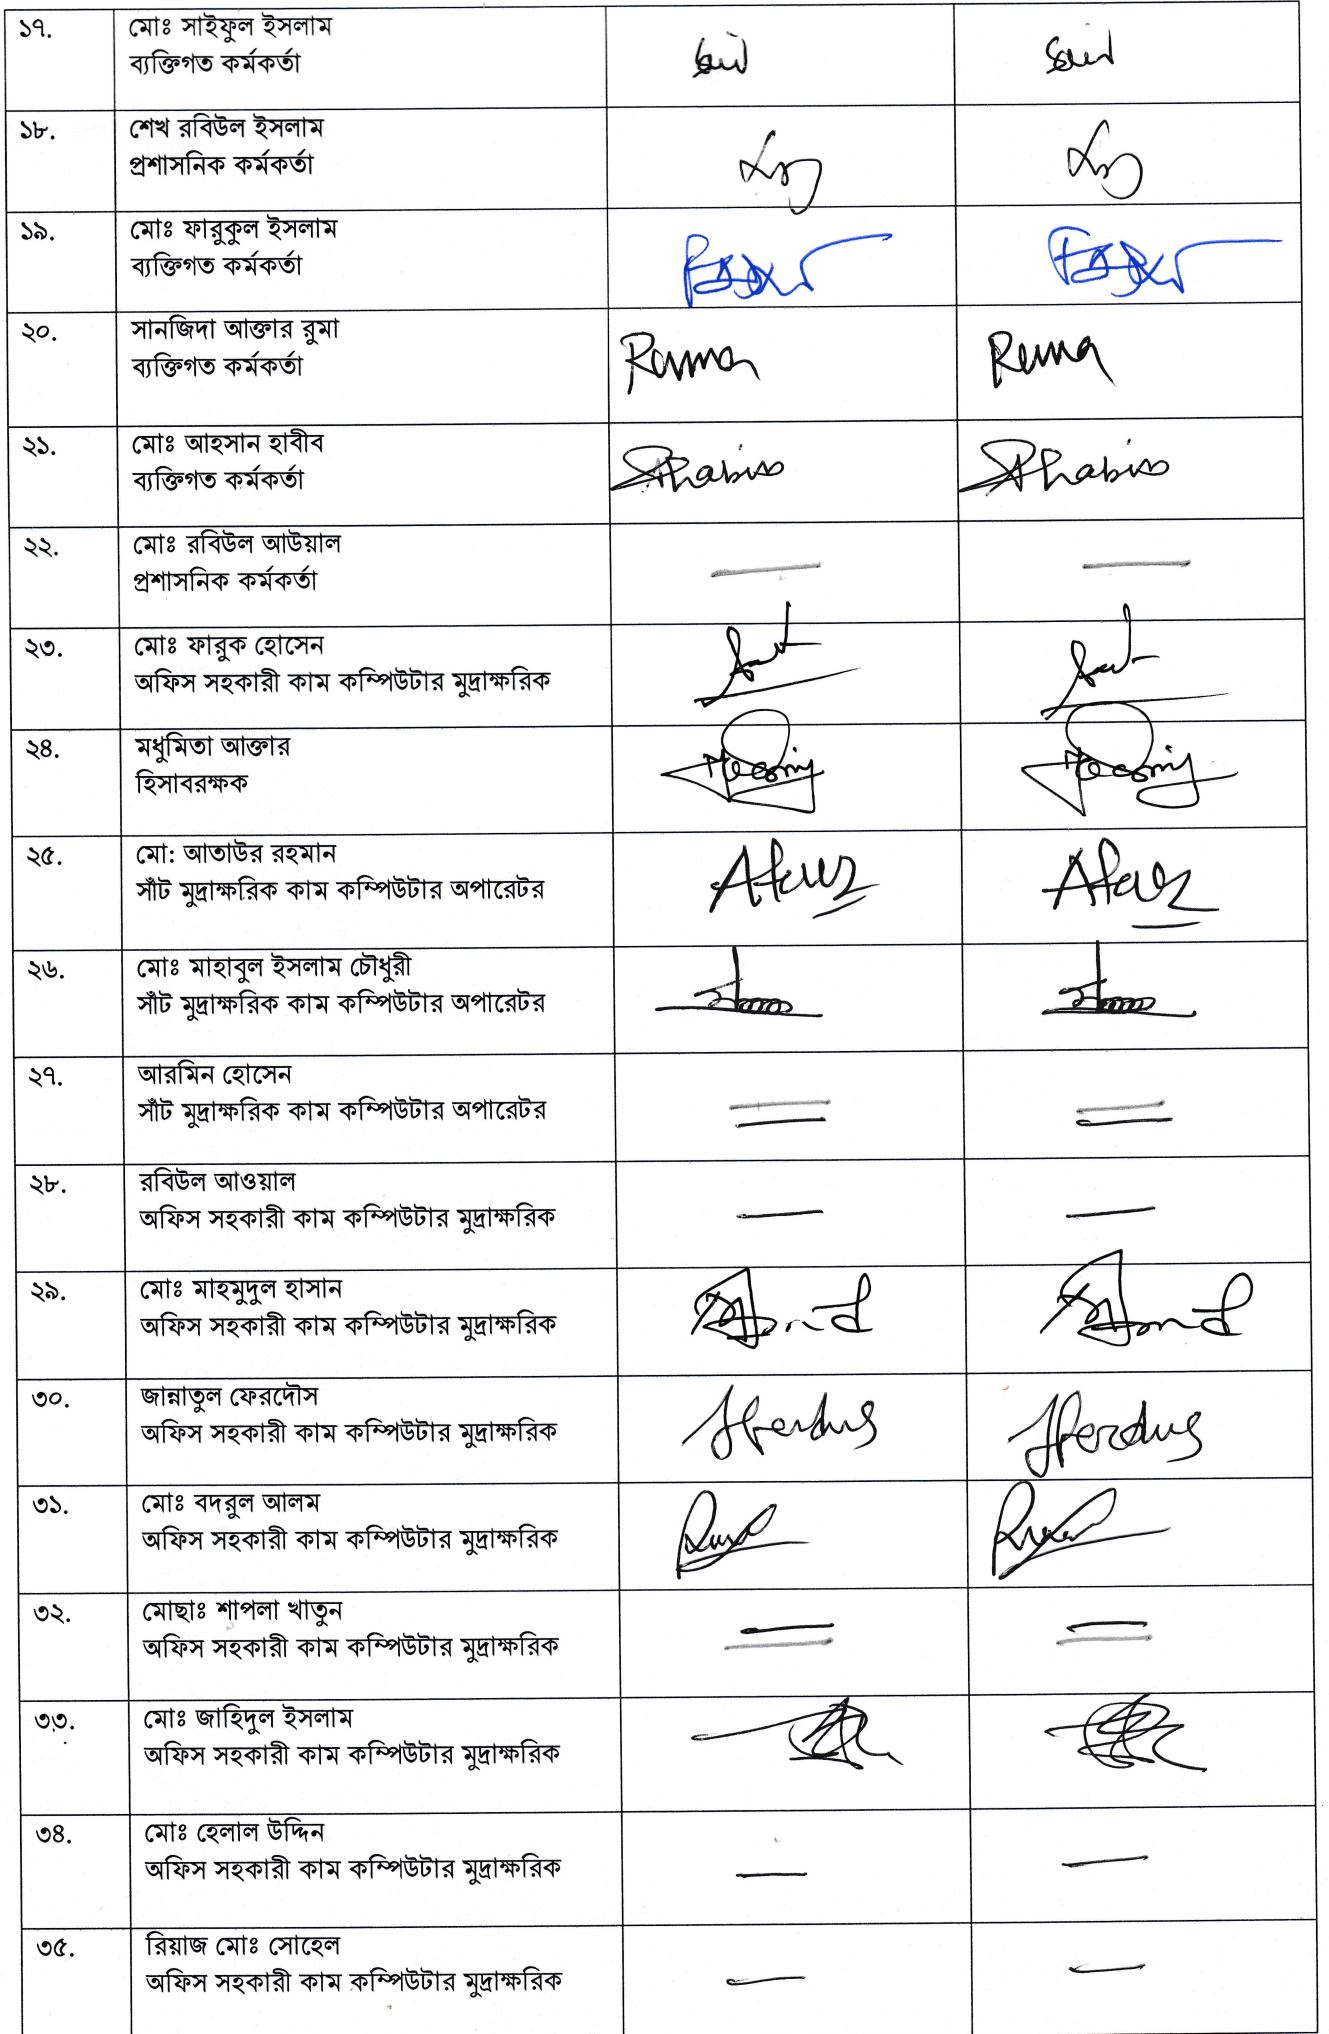 ১৭.
মোঃ সাইফুল ইসলাম
ব্যক্তিগত কর্মকর্তা
১৮.
শেখ রবিউল ইসলাম
প্রশাসনিক কর্মকর্তা
১৯.
মোঃ ফারুকুল ইসলাম
ব্যক্তিগত কর্মকর্তা
২০.
সানজিদা আক্তার রুমা
ব্যক্তিগত কর্মকর্তা
Ruma Ruma
২১.
মোঃ আহসান হাবীব
ব্যক্তিগত কর্মকর্তা
২২.
মোঃ রবিউল আউয়াল
প্রশাসনিক কর্মকর্তা
২৩.
মোঃ ফারুক হোসেন
অফিস সহকারী কাম কম্পিউটার মুদ্রাক্ষরিক
২৪.
মধুমিতা আক্তার
হিসাবরক্ষক
২৫.
মো: আতাউর রহমান
সাঁট মুদ্রাক্ষরিক কাম কম্পিউটার অপারেটর
২৬.
মোঃ মাহাবুল ইসলাম চৌধুরী
সাঁট মুদ্রাক্ষরিক কাম কম্পিউটার অপারেটর
২৭.
আরমিন হোসেন
সাঁট মুদ্রাক্ষরিক কাম কম্পিউটার অপারেটর
২৮.
রবিউল আওয়াল
অফিস সহকারী কাম কম্পিউটার মুদ্রাক্ষরিক
২৯.
মোঃ মাহমুদুল হাসান
অফিস সহকারী কাম কম্পিউটার মুদ্রাক্ষরিক
৩০.
জান্নাতুল ফেরদৌস
অফিস সহকারী কাম কম্পিউটার মুদ্রাক্ষরিক
৩১.
মোঃ বদরুল আলম
অফিস সহকারী কাম কম্পিউটার মুদ্রাক্ষরিক
৩২.
মোছাঃ শাপলা খাতুন
অফিস সহকারী কাম কম্পিউটার মুদ্রাক্ষরিক
৩৩.
মোঃ জাহিদুল ইসলাম
অফিস সহকারী কাম কম্পিউটার মুদ্রাক্ষরিক
৩৪.
মোঃ হেলাল উদ্দিন
অফিস সহকারী কাম কম্পিউটার মুদ্রাক্ষরিক
৩৫.
রিয়াজ মোঃ সোহেল
অফিস সহকারী কাম কম্পিউটার মুদ্রাক্ষরিক